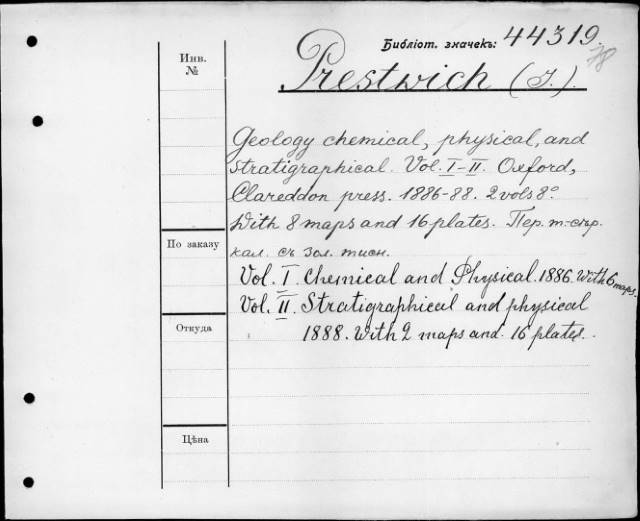 Библіот. значекъ: 44319
78
Инв.
№
Prestwich (J.).
Geology chemical, physical, and
Stratigraphical. Vol. I-II. Oxford,
Clareddon press. 1886-88. 2 vols 8°
With 8 maps and 16 plates. Пер. т-сѣр.
кал. съ зол. тисн.
По заказу
Vol. I Chemical and Physical. 1886. With 6 maps.
Vol. II. Stratigraphical and physical
Откуда
1888. With 2 maps and. 16 plates.
Цѣна